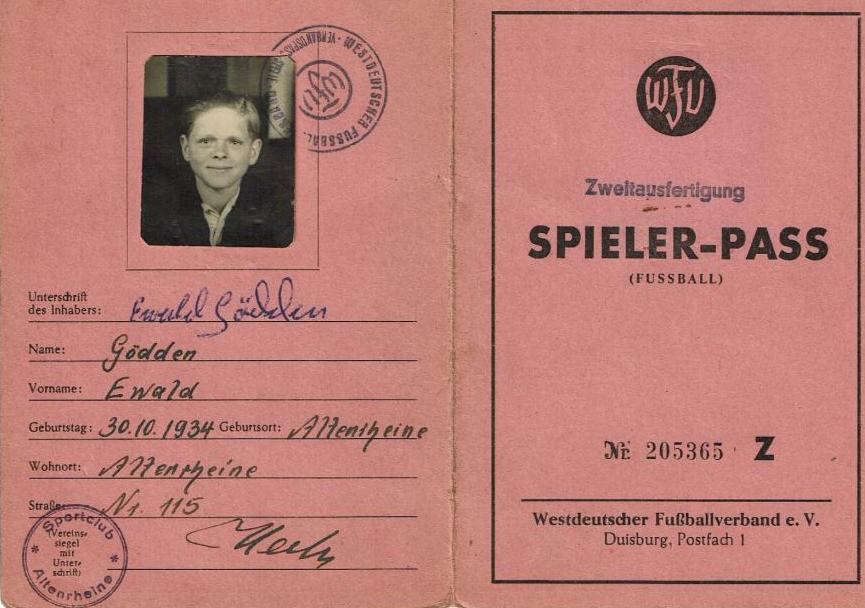 WESTDEUTSCHER FUSSBALL
WFV
Unterschrift
des Inhabers: Ewald Gödden
Name: Gödden
Vorname: Ewald
Geburtstag: 30.10.1934 Geburtsort: Altenrheine
Wohnort: Altenrheine
Straße: Nr. 115
Sportclub
(Vereins-
siegel
mit
Unter-
schrift)
Altenrheine
WFV
Zweitausfertigung
SPIELER-PASS
(FUSSBALL)
Nr. 205365 Z
Westdeutscher Fußballverband e. V.
Duisburg, Postfach 1